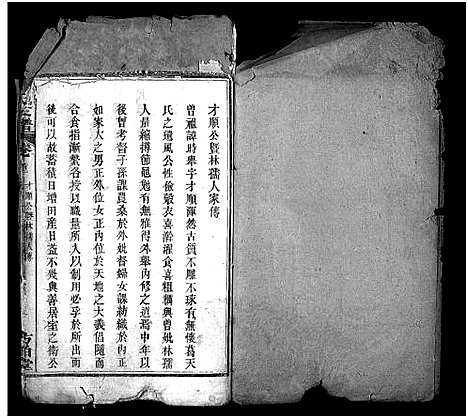 才順公暨林孺人家傳
曾祖諱時舉字才順渾然古質不雕不琢有無懷葛天
氏之遺風公性儉穀衣喜澣濯食喜粗糲與曾妣林孺
人量絹搏節黽勉有無雅得外舉內修之道焉中年以
後曾考督子孫課農桑於外妣督婦女課紡織於內正
如彖大之男正外位女正內位於天地之大義倡隨而
合食指漸繁各授以職量所入以制用必於所出而
後可以故蓄積日增田產日益不幾與善居室之衛公
才順公暨林孺人傳